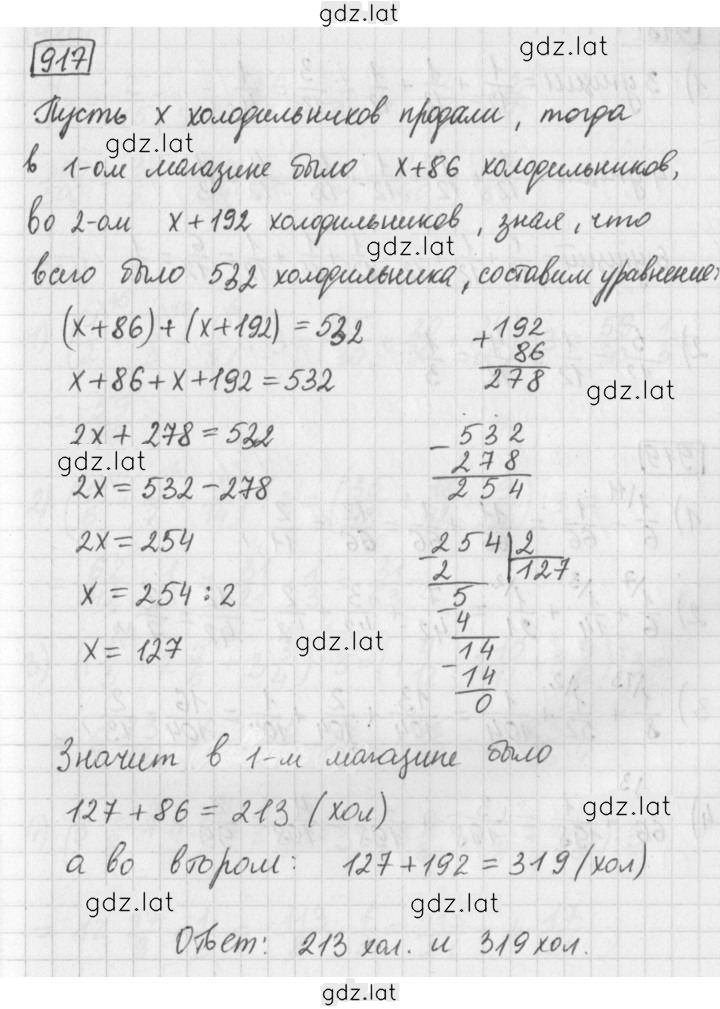 gdz.lat
917
gdz.lat
Пусть x холодильников продали, тогда
gdz.lat
в 1-ом магазине было x+86 холодильников,
во 2-ом x+192 холодильников, зная, что
gdz.lat
всего было 532 холодильника, составим уравнение:
(x+86)+(x+192)=532
+192
86
278
x+86+x+192=532
gdz.lat
2x+278=532
-532
278
254
gdz.lat
2x=532-278
2x=254
-254|2
2 127
-5
4
-14
14
0
x=254:2
x=127
gdz.lat
Значит в 1-м магазине было
127+86=213 (хол)
gdz.lat
а во втором: 127+192=319 (хол)
gdz.lat gdz.lat
Ответ: 213 хол. и 319 хол.
gdz.lat